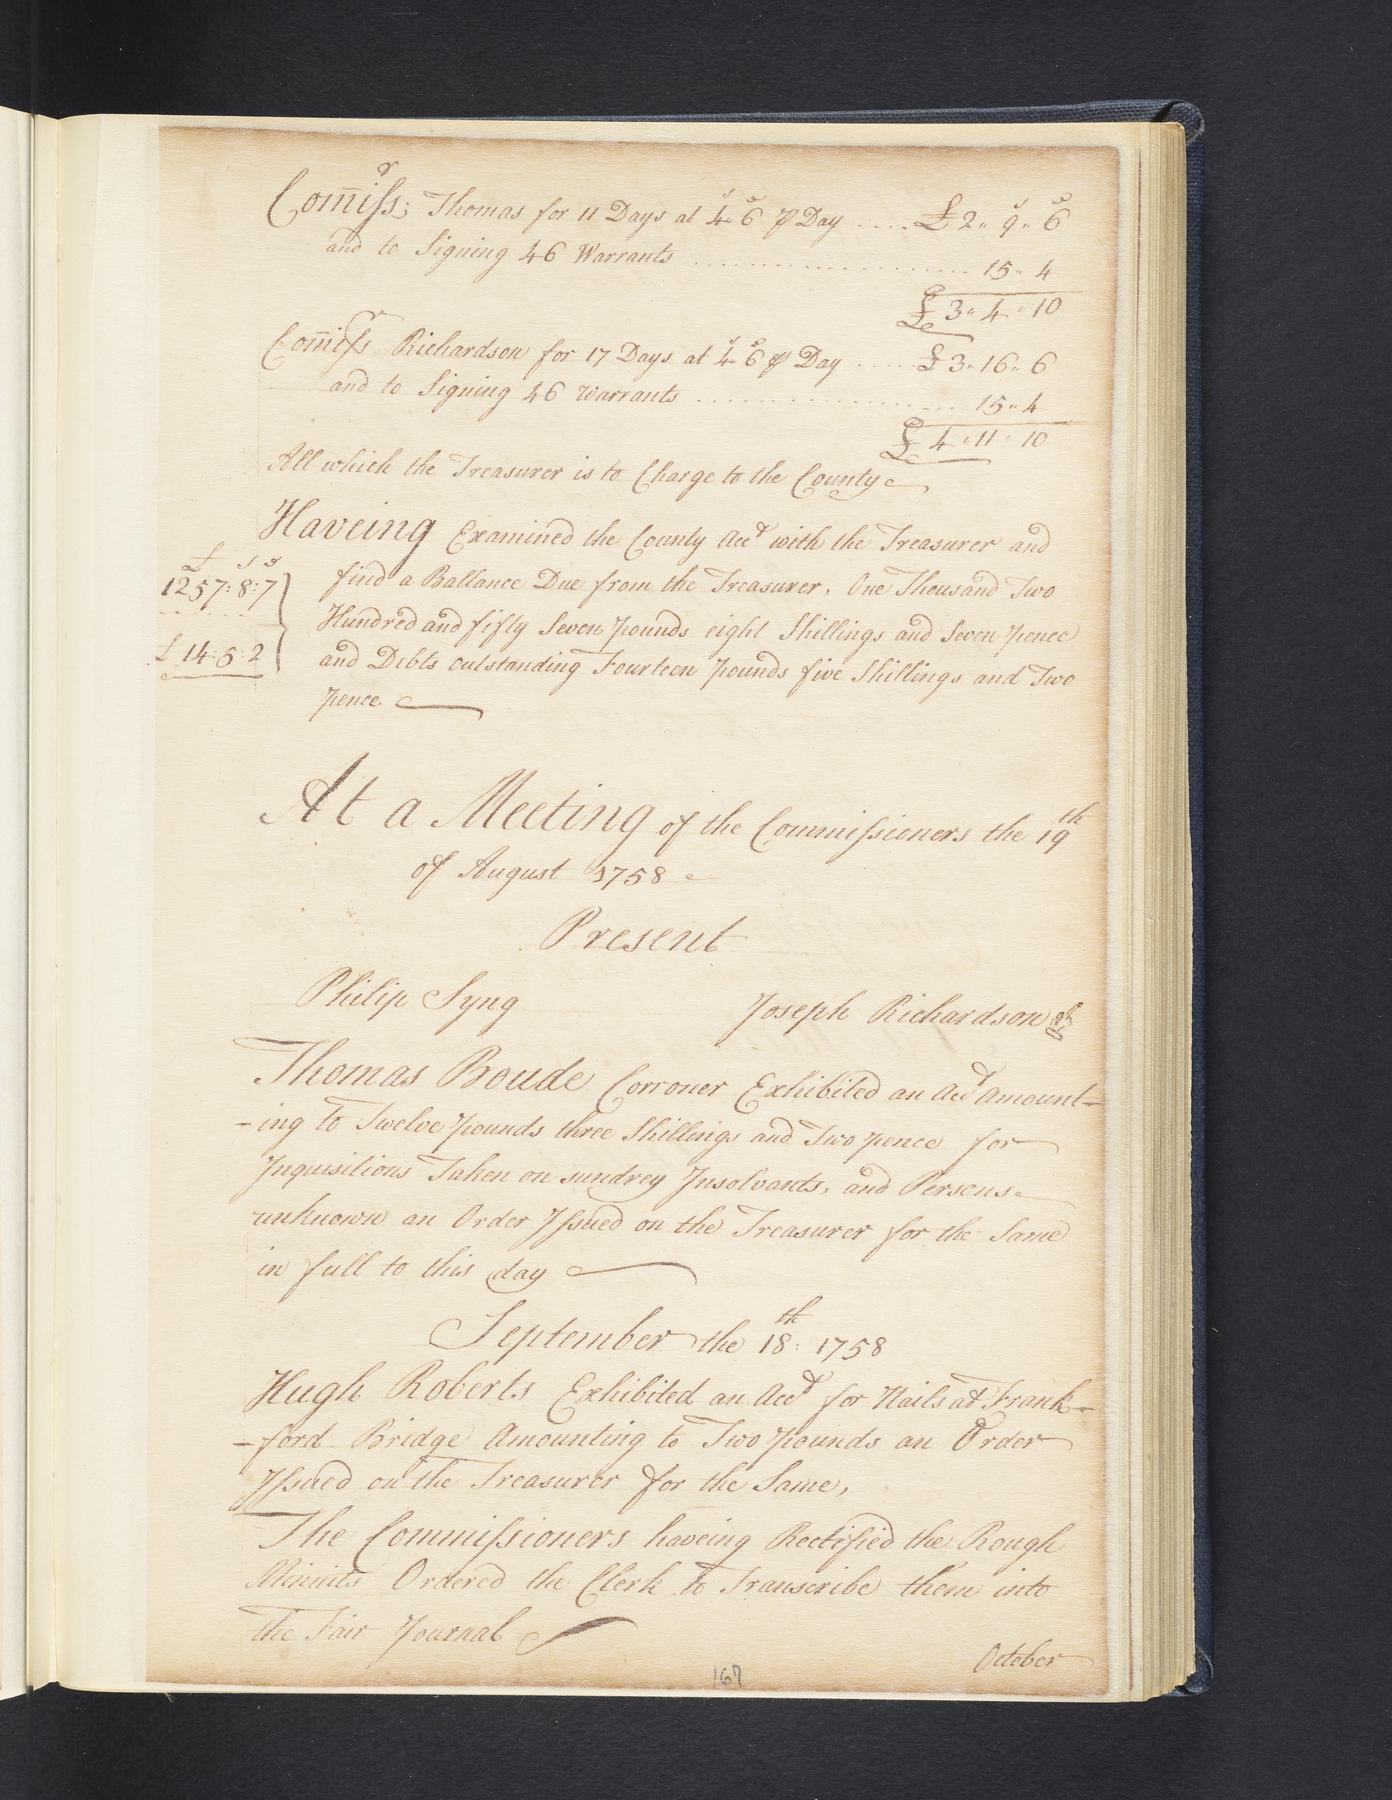 Com̄iss:r Thomas for 11 Days at 4s 6d ⅌ Day .... £2 " 9 " 6
and to Signing 46 Warrants .................. 15 " 4
£ 3 " 4 " 10
Com̄issr Richardson for 17 Days at 4s 6d ⅌ Day ..... £3 " 16 " 6
and to Signing 46 Warrants .................. 15 " 4
£ 4 " 11 " 10
All which the Treasurer is to Charge to the County
Haveing Examined the County Acct with the Treasurer and
£ s d
1257:8:7
find a Ballance Due from the Treasurer, One Thousand Two
Hundred and fifty Seven pounds eight Shillings and Seven pence
£ 14:5:2
and Debts outstanding Fourteen pounds five Shillings and Two
pence
At a Meeting of the Commissioners the 19th
of August 1758
Present
Philip Syng
Joseph Richardson
Thomas Boude Corroner Exhibited an Acct Amount-
-ing to Twelve pounds three Shillings and Two pence for
Inquisitions Taken on sundrey Insolvants, and Persons
unknown an Order Issued on the Treasurer for the Same
in full to this day
September the 18th: 1758
Hugh Roberts Exhibited an Acct for Nails at Frank-
-ford Bridge Amounting to Two pounds an Order
Issued on the Treasurer for the Same,
The Commissioners haveing Rectified the Rough
Minuits Ordered the Clerk to Transcribe them into
the Fair Journal
October
167